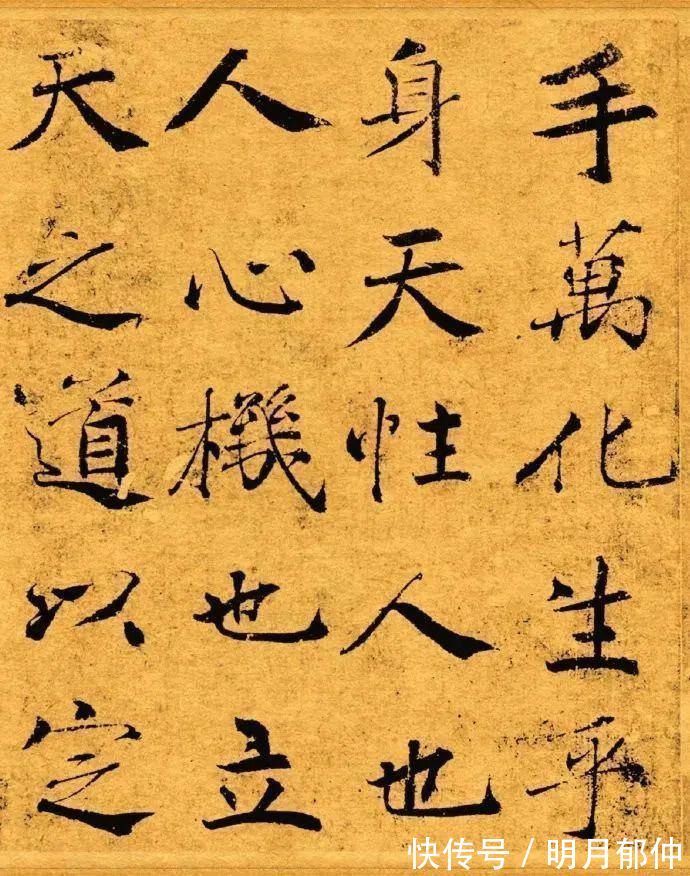 手萬化生乎
身天性人也
人心機也立
天之道以定
快传号/明月郁仲